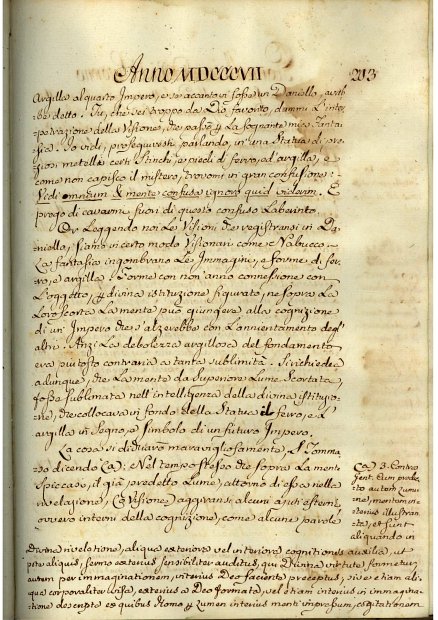 Anno MDCCCVII 213
Argilla al quarto Impero, e se accanto vi fosse un Daniello, avreb-
be detto. Tu, che sei troppo da Dio favorito, dammi l'inter-
petrazione della Visione, che passò per la sognante mia fanta-
sia. Io vidi, proseguirsi parlando, in una Statua di pre-
ziosi metalli certi stinchi, e piedi di ferro, ed argilla, e
come non capisco il mistero, trovomi in gran confusione:
Vidi omnium & mente confusa ignoro quid viderim. E
prego di cavarmi fuori di questo confuso Laberinto.
Or Leggendo noi Le Visioni che registransi in Da-
niello, siamo in certo modo Visionari come Nabucco.
La fantasia ingombrano Le Immagini, e forme di fer-
ro, e argilla: Forme con non anno connessione con
L'oggetto, per divina istituzione figurato, ne sopra La
Loro scorta La mente può giungere alla cognizione
di un Impero che s'alzerebbe con L'annientamento degl'
altri. Anzi La debolezza argillosa del fondamento
era piutosto contraria a tanta sublimità. Si richiedea
adunque, che La mente da superiore Lume scortata,
fosse sublimata nell'intelligenza della divina istituzio-
ne, che collocava in fondo della Statua il ferro, e L'
argilla in segno, e simbolo di un futuro Impero.
La cosa si dichiarò maravigliosamente S. Tomma-
so dicendo (a): Nel tempo stesso che sopra La mente
spiccasi, il già predetto Lume, attorno di essa nella
rivelazione, (e Visione) aggiransi alcuni ajuti esterni,
ovvero interni della cognizione, come alcune parole
(a) 3. Contra
Gent. Cum predi-
cto autem lumi-
ne, mentem in-
terius illustran-
te, et sunt
aliquando in
divina revelatione, aliqua exteriora vel interiora cognitionis auxilia, ut
pote aliquis, sermo exterius sensibiliter auditus, qui divina virtute formetur,
autem per immaginationem, interius Deo faciente preceptus, sive etiam ali-
qua corporaliter visa, exterius a Deo formata, vel etiam interius in immagina-
tione descripta ex quibus Homo per lumen interius menti impressum, cogitationem